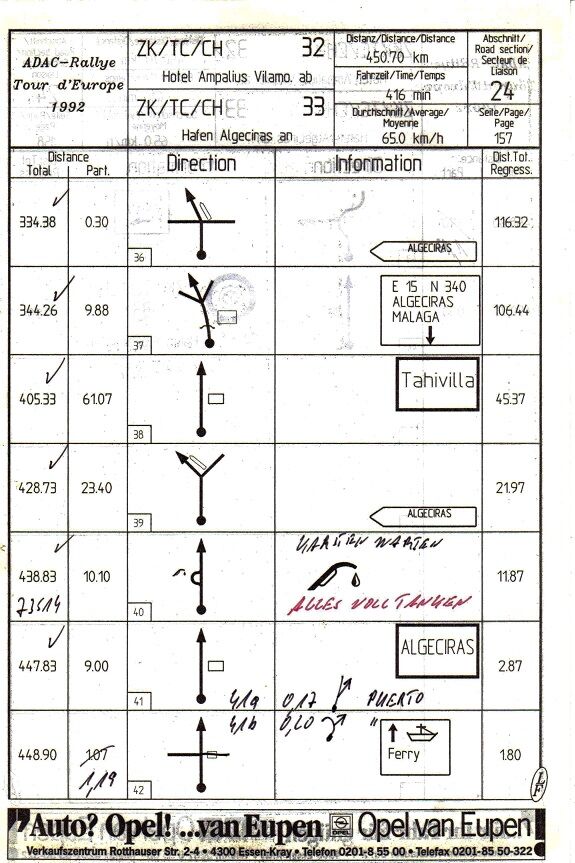 ADAC-Rallye
Tour d'Europe
1992
ZK/TC/CH 32
Hotel Ampalius Vilamo. ab
ZK/TC/CH 33
Hafen Algeciras an
Distanz/Distance/Distance
450.70 km
Fahrzeit/Time/Temps
416 min
Durchschnitt/Average/
Moyenne
65.0 km/h
Abschnitt/
Road section/
Secteur de
liaison
24
Seite/Page/
Page
157
Distance
Total Part.
Direction
Information
Dist.Tot.
Regress.
334.38 0.30 36 ALGECIRAS 116.32
344.26 9.88 37
E 15 N 340
ALGECIRAS
MALAGA
106.44
405.33 61.07 38 Tahivilla 45.37
428.73 23.40 39 ALGECIRAS 21.97
438.83 10.10 40
WARTEN
ALLES VOLLTANKEN
11.87
447.83 9.00 41 ALGECIRAS 2.87
41a 0,17 PUERTO
41b 0,20 "
448.90 1.07 42
1,19
Ferry
1.80
Auto? Opel! ...van Eupen OPEL Opel van Eupen
Verkaufszentrum Rotthauser Str. 2-4 • 4300 Essen-Kray • Telefon 0201-8 55 00 • Telefax 0201-85 50-322